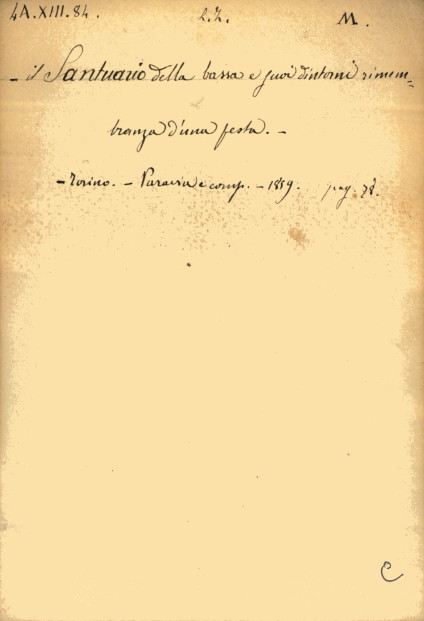 4A.XIII.84. 2.Z. M.
- il Santuario della bassa e suoi dintorni rimem=
branza d'una festa. -
- Torino. - Paravia e comp. - 1859. pag. 78.
C